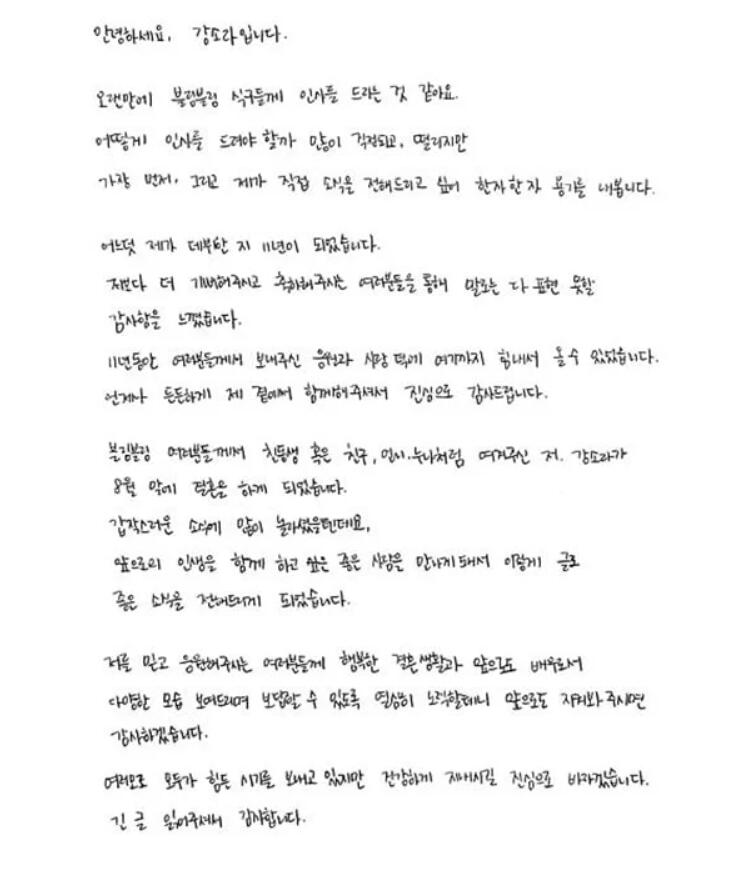 안녕하세요, 강소라입니다.
오랜만에 블링블링 식구들께 인사를 드리는 것 같아요.
어떻게 인사를 드려야 할까 많이 걱정되고, 떨리지만
가장 먼저, 그리고 제가 직접 소식을 전해드리고 싶어 한자한자 용기를 내봅니다.
어느덧 제가 데뷔한 지 11년이 되었습니다.
저보다 더 기뻐해주시고 축하해주시는 여러분들을 통해 말로는 다 표현 못할
감사함을 느꼈습니다.
11년동안 여러분들께서 보내주신 응원과 사랑 덕에 여기까지 힘내서 올 수 있었습니다.
언제나 든든하게 제 곁에서 함께해주셔서 진심으로 감사드립니다.
블링블링 여러분들께서 친동생 혹은 친구, 언니·누나처럼 여겨주신 저, 강소라가
8월 말에 결혼을 하게 되었습니다.
갑작스러운 소식에 많이 놀라셨을텐데요,
앞으로의 인생을 함께 하고 싶은 좋은 사람을 만나게 돼서 이렇게 글로
좋은 소식을 전해드리게 되었습니다.
저를 믿고 응원해주시는 여러분들께 행복한 결혼생활과 앞으로도 배우로서
다양한 모습 보여드리며 보답할 수 있도록 열심히 노력할테니 앞으로도 지켜봐 주시면
감사하겠습니다.
여러모로 모두가 힘든 시기를 보내고 있지만 건강하게 지내시길 진심으로 바라겠습니다.
긴 글 읽어주셔서 감사합니다.